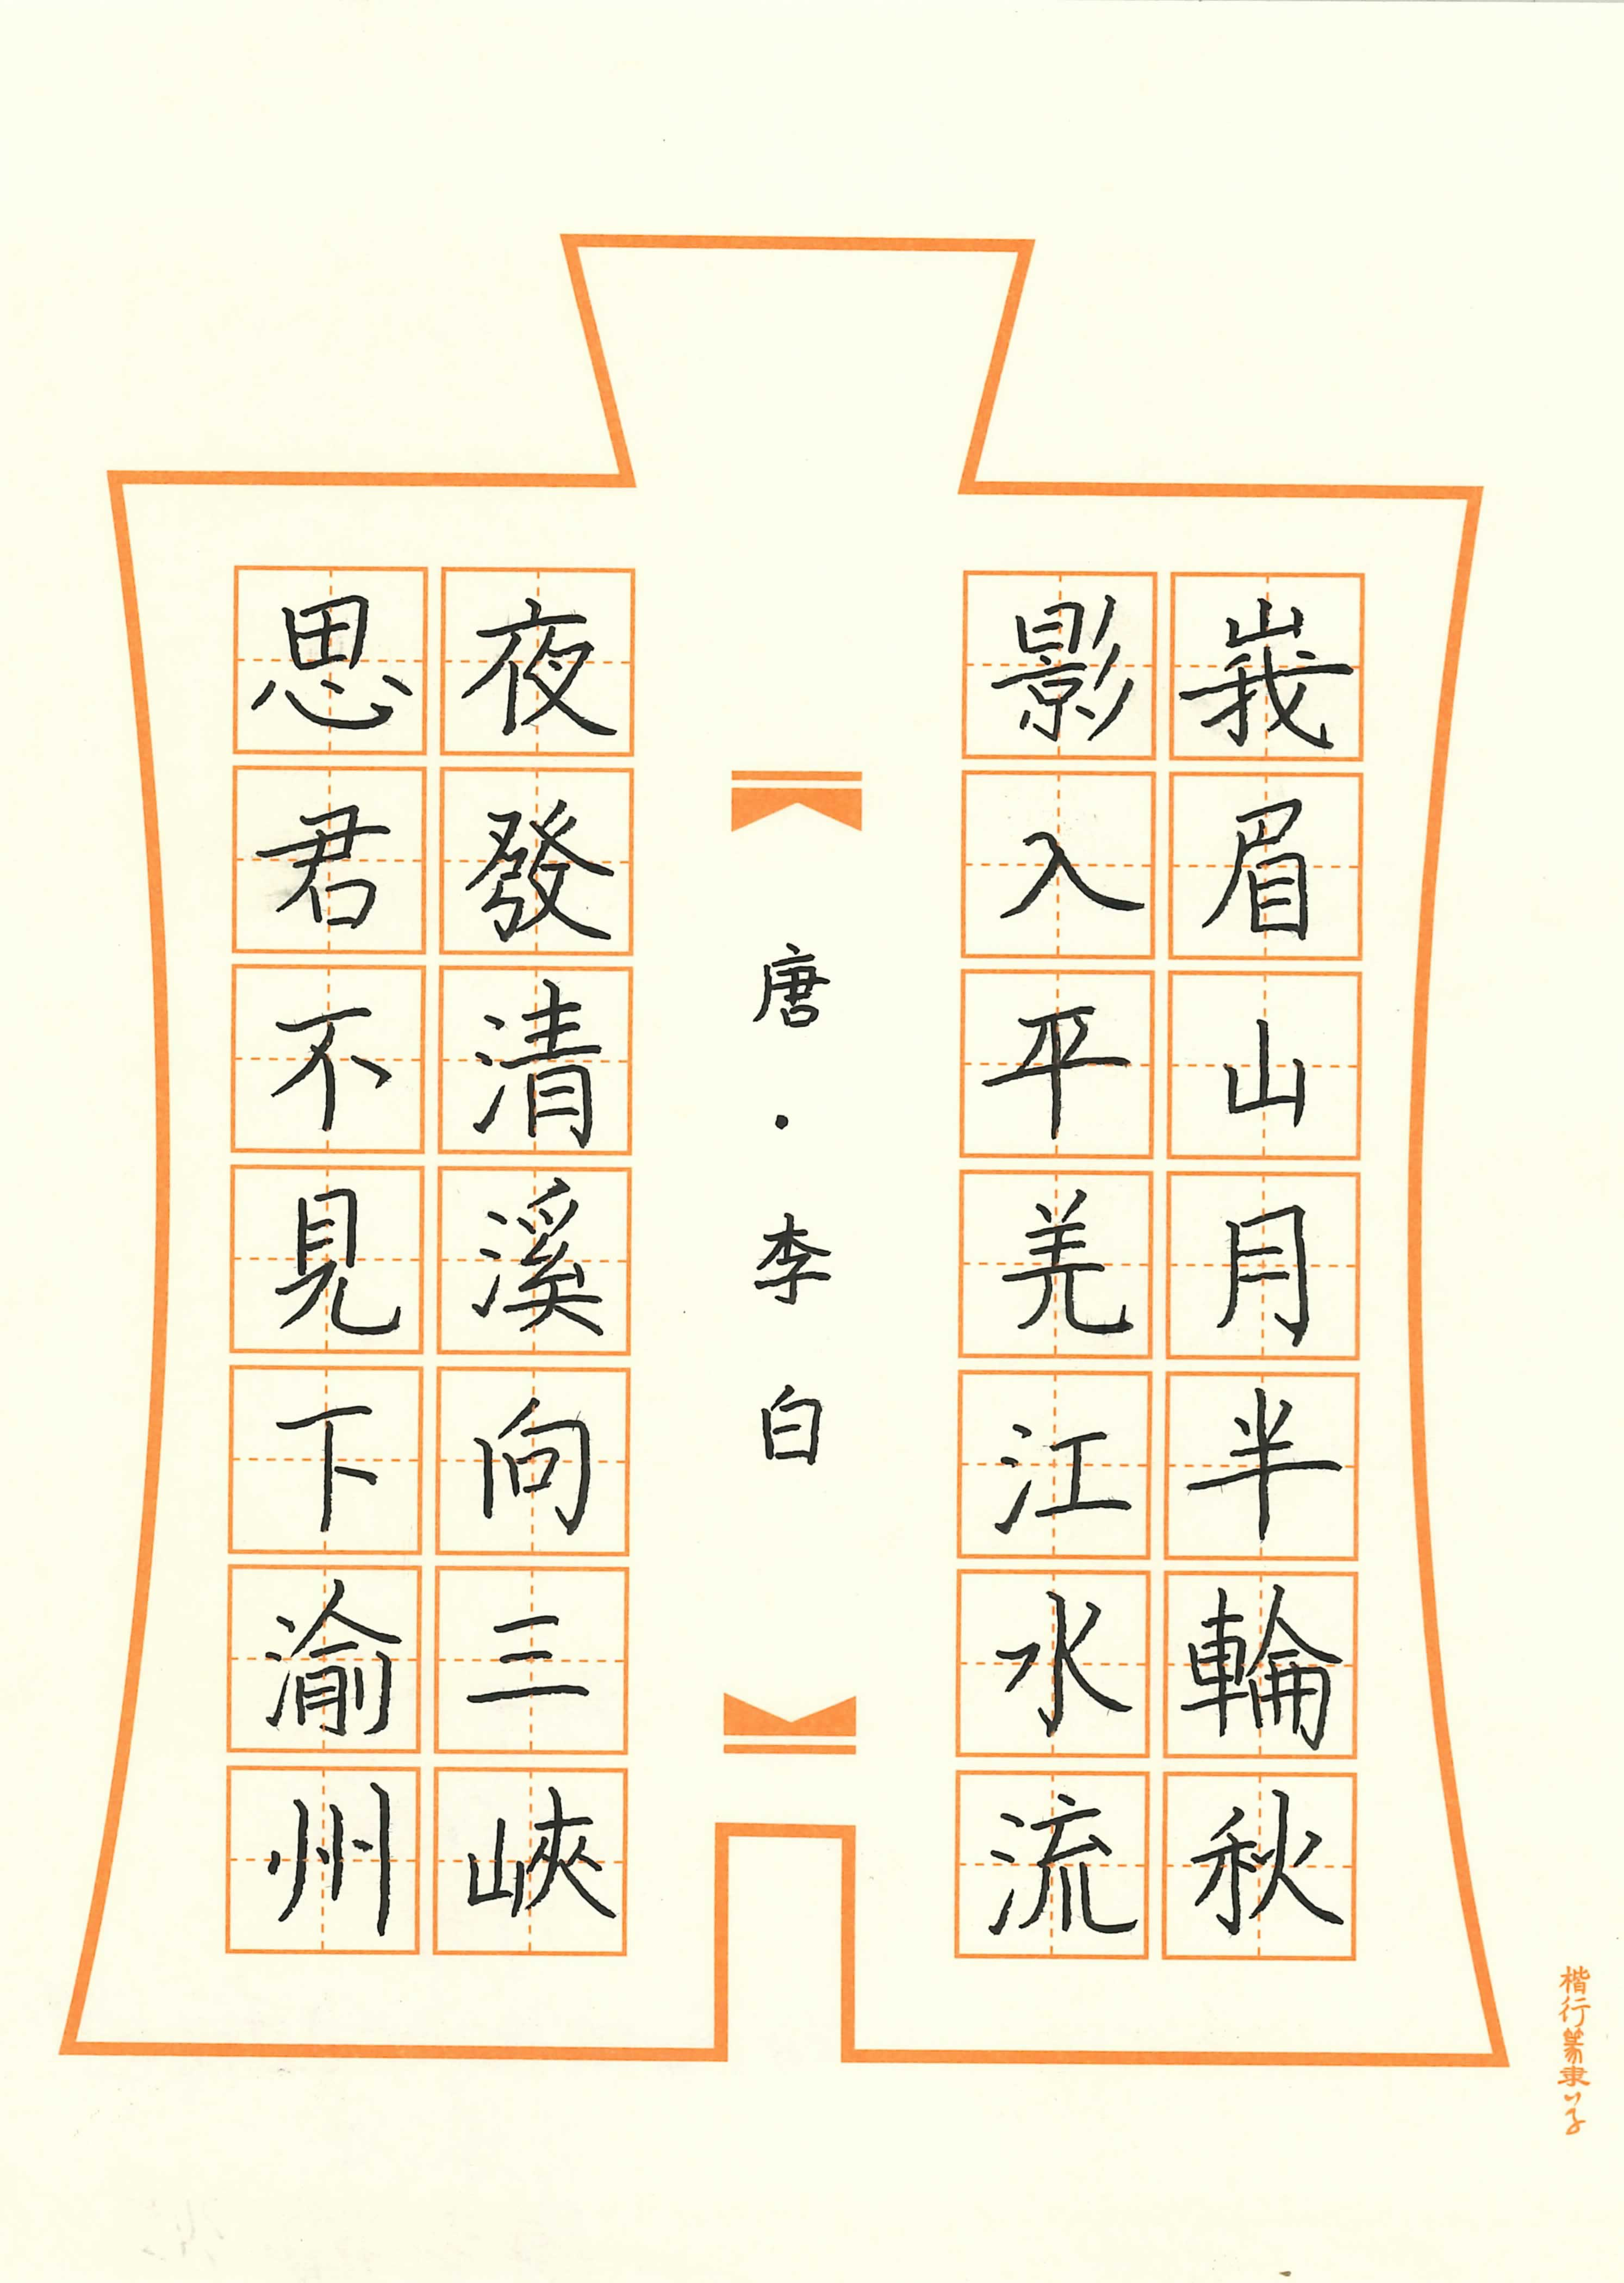 峩眉山月半輪秋
影入平羌江水流
唐·李白
夜發清溪向三峽
思君不見下渝州
楷行篆隶